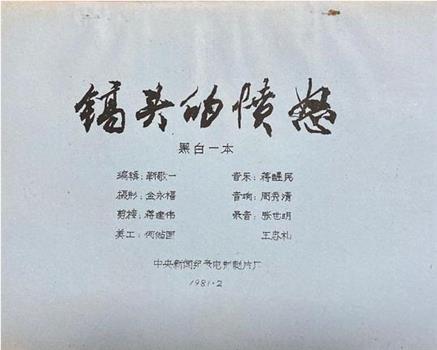 镐头的愤怒
黑白一本
编辑:靳敬一 音乐:蒋醒民
摄影:金永福 音响:周秀清
剪接:蒋建伟 录音:张世明
美工: 王忠礼
中央新闻纪录电影制片厂
1981·2